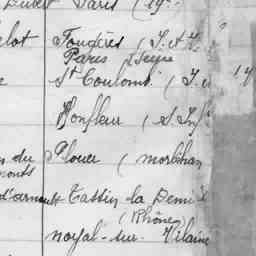 Paris (19e
elot Fougères (I. et V.
Paris
St Coulomb (I. et 14
Honfleur (S. Inf
du Plouer (morbihan
monts
d'arnault Tassin-la-Demi
(Rhône)
noyal-sur-Vilaine